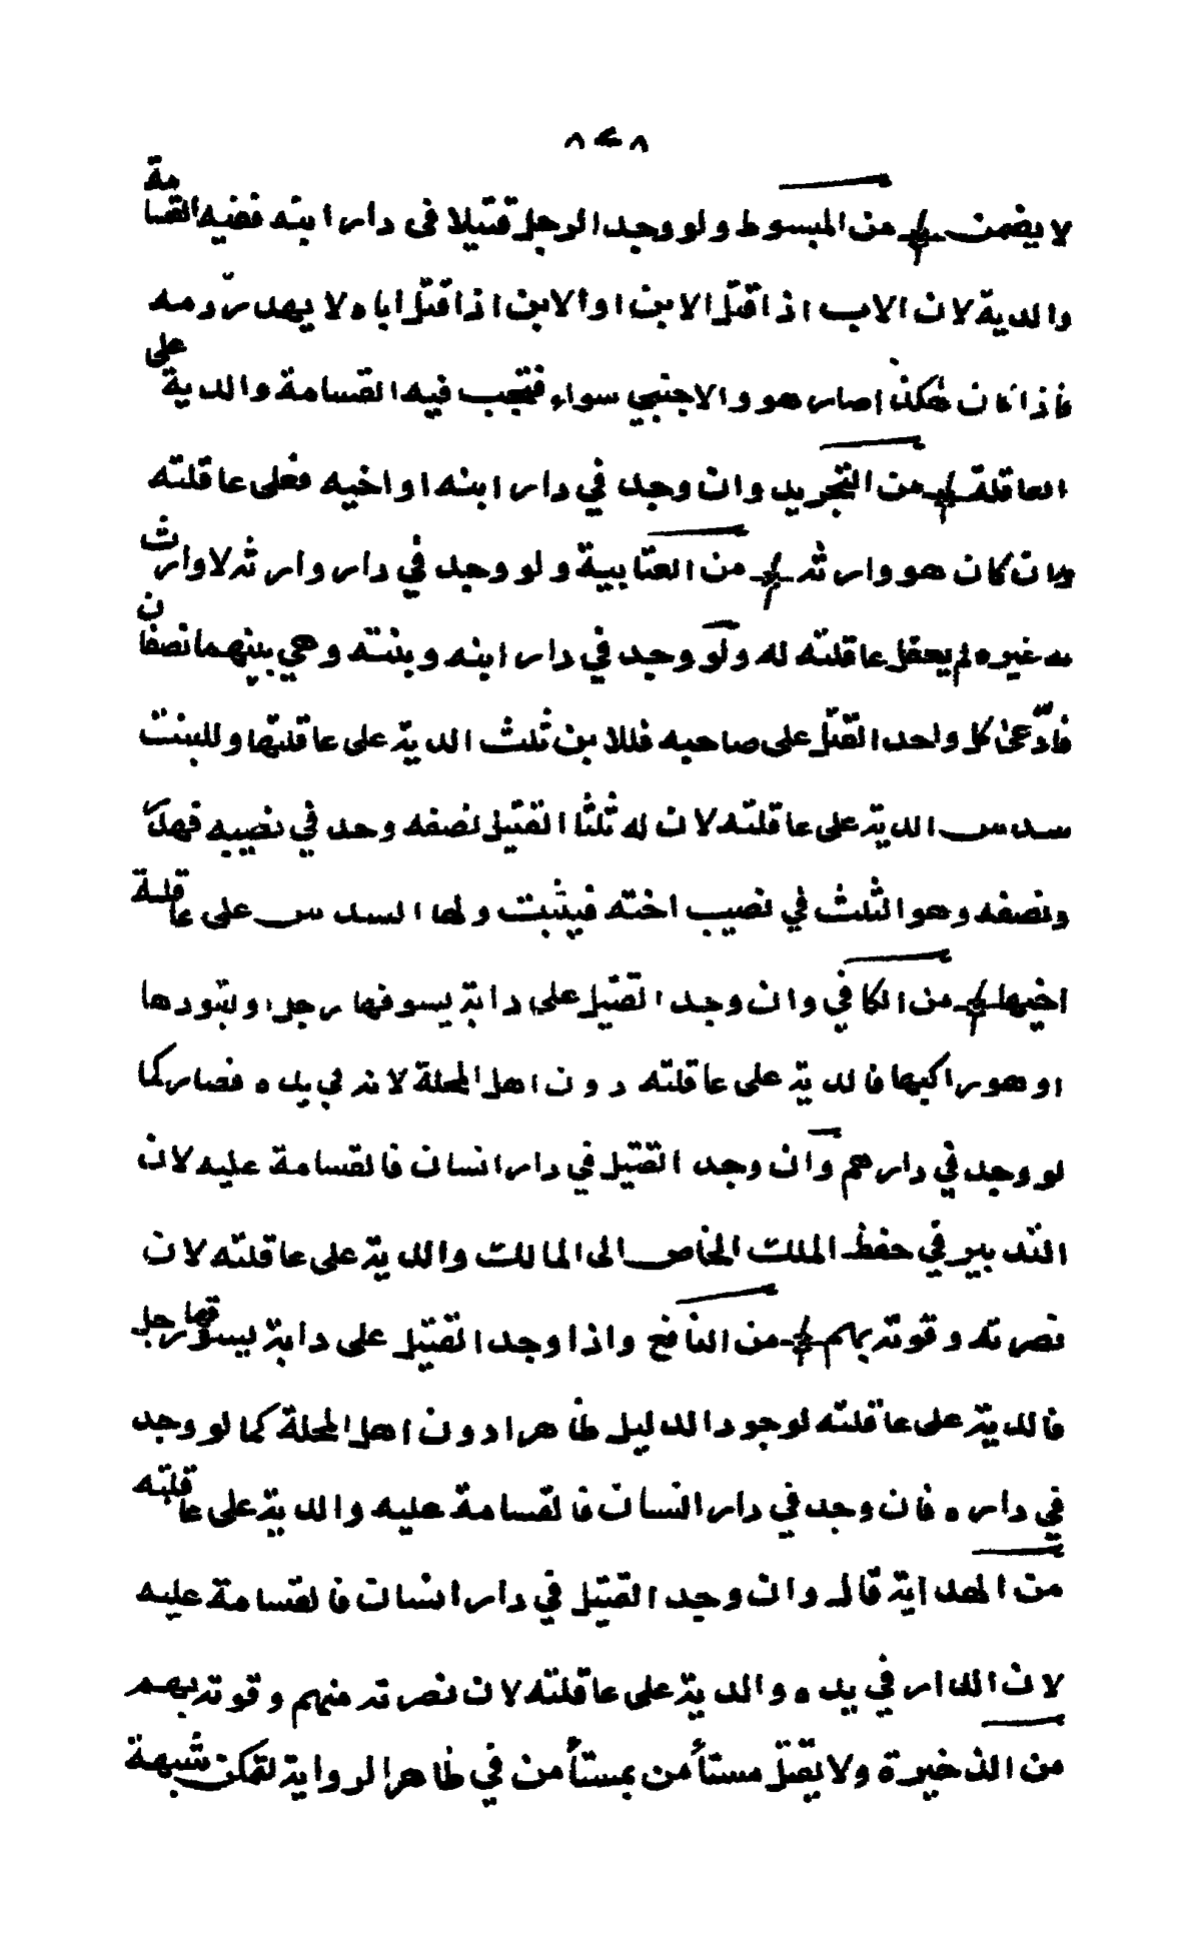 ٨٤٨
لا يضمن من المبسوط ولو وجد الرجل قتيلا فى دار ابنه ففيه القسامة
والدية لان الاب اذا قتل الابن او الابن اذا قتل اباه لا يهدر دمه
فاذا كان هكذا صار هو والاجنبي سواء فتجب فيه القسامة والدية على
العاقلة من التجريد وان وجد في دار ابنه او اخيه فعلى عاقلته
وان كان هو وارثه من العتابية ولو وجد في دار وارثه لا وارث
له غيره لم يعقل عاقلته له ولو وجد في دار ابنه وبنته وهي بينهما نصفان
فادّعى كل واحد القتل على صاحبه فللابن ثلث الدية على عاقلتها وللبنت
سدس الدية على عاقلته لان له ثلثا القتيل نصفه وجد في نصيبه فهدر
ونصفه وهو الثلث في نصيب اخته فيثبت ولها السدس على عاقلة
اخيها من الكافي وان وجد القتيل على دابة يسوقها رجل او يقودها
او هو راكبها فالدية على عاقلته دون اهل المحلة لانه في يده فصار كما
لو وجد في دارهم وان وجد القتيل في دار انسان فالقسامة عليه لان
التدبير في حفظ الملك الخاص الى المالك والدية على عاقلته لان
نصرته وقوته بهم من النافع واذا وجد القتيل على دابة يسوقها رجل
فالدية على عاقلته لوجود الدليل ظاهرا دون اهل المحلة كما لو وجد
في داره فان وجد في دار انسان فالقسامة عليه والدية على عاقلته
من الهداية قال وان وجد القتيل في دار انسان فالقسامة عليه
لان الدار في يده والدية على عاقلته لان نصرته منهم وقوته بهم
من الذخيرة ولا يقتل مستأمن بمستأمن في ظاهر الرواية لتمكن شبهة